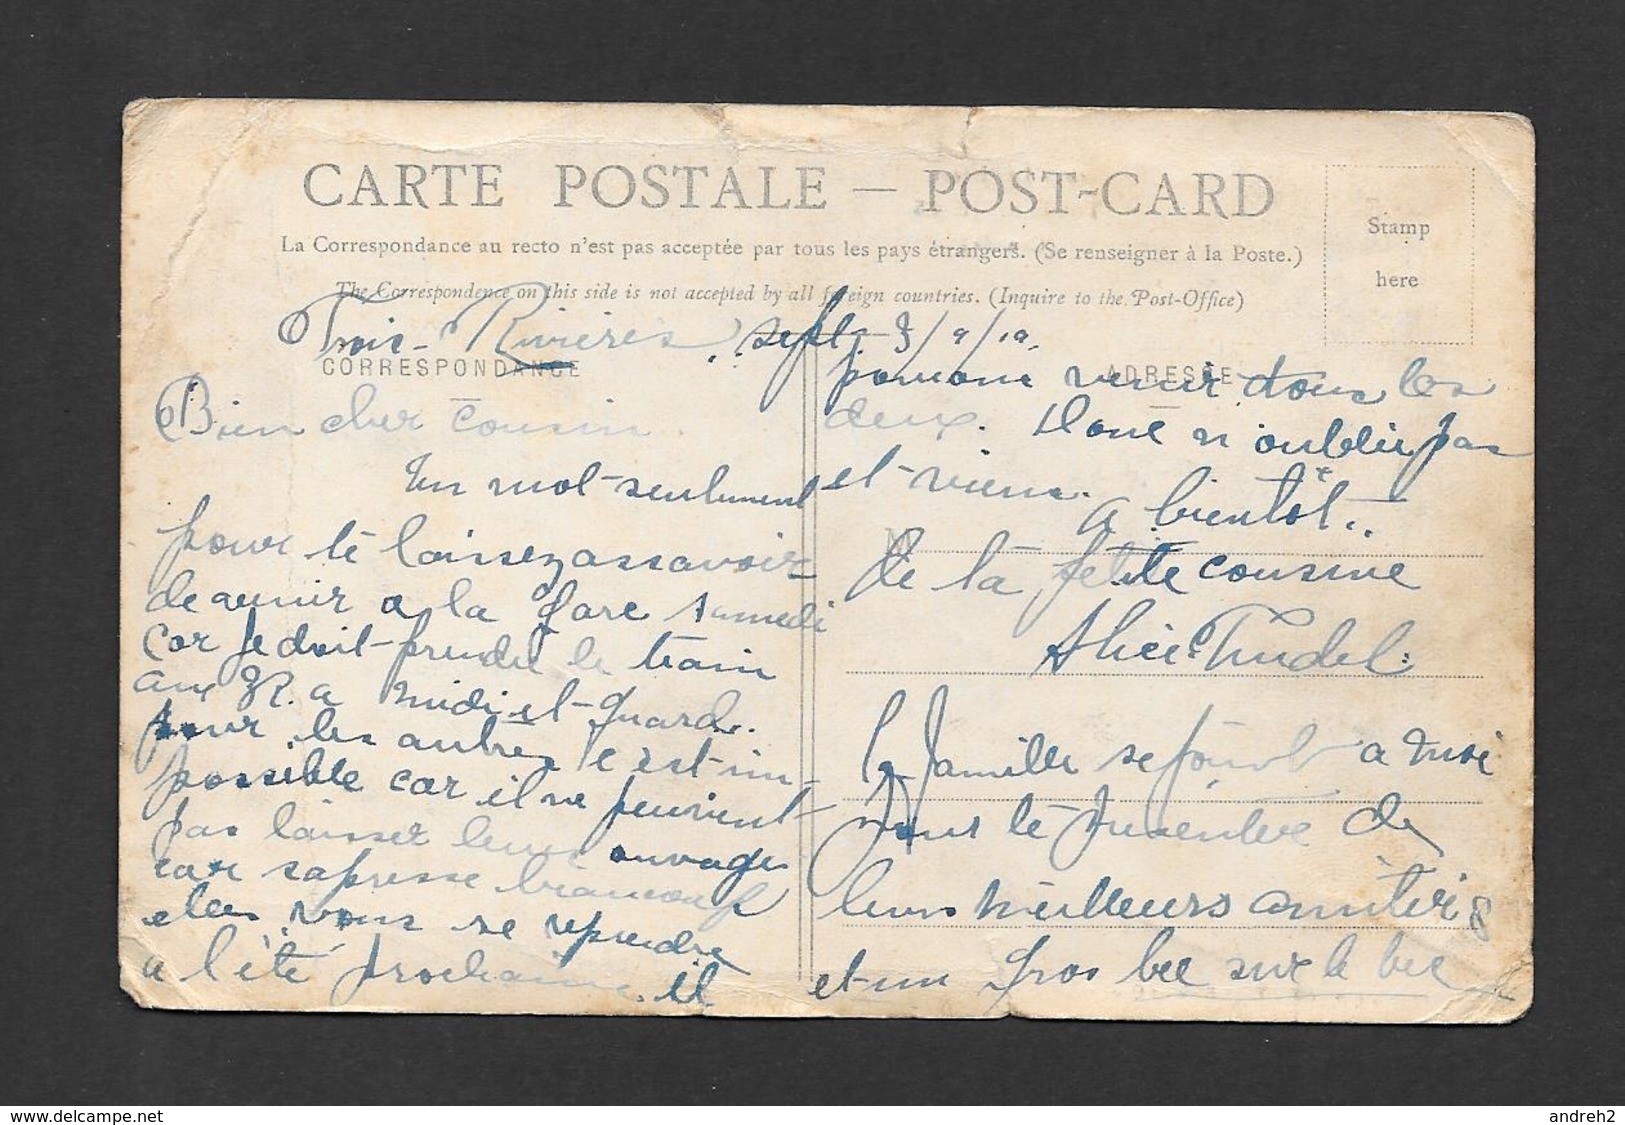 CARTE POSTALE — POST-CARD
La Correspondance au recto n'est pas acceptée par tous les pays étrangers. (Se renseigner à la Poste.)
The Correspondence on this side is not accepted by all foreign countries. (Inquire to the Post-Office)
Stamp
here
Trois-Rivières, sept
CORRESPONDANCE
Bien cher Cousin.
Un mot seulement
pour te laissez assavoir
de venir a la gare samedi
car je doit prendre le train
a midi et quard.
pour les autres c'est im-
possible car il ne peuvent
pas laisser leur ouvage
car sa presse beaucoup
elles vous se reprendre
a l'été prochaine. il
ADRESSE
pourons venir tous les
deux. Donc n'oublie pas
et viens.
a bientôt..
De la petite cousine
Alice Trudel
la famille se joint a moi
pour te presenter de
leurs meilleurs amitiers
et un gros bec sur le bec
delcampe.net
andreh2